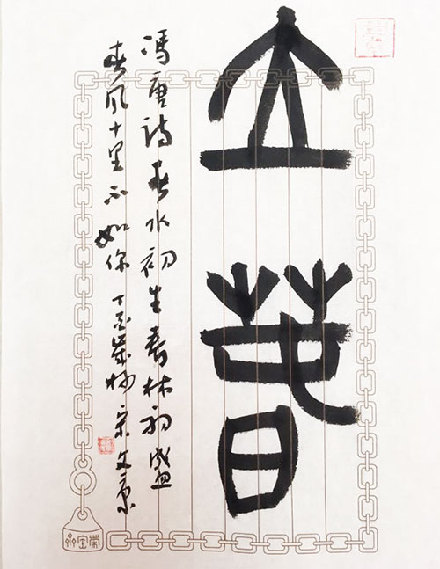 立春
冯唐诗春水初生春林初盛
春风十里不如你 丁酉岁杪宋文京